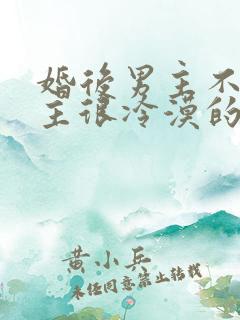 婚後男主不
主很冷漠的
黄小兵
未经同意禁止转载